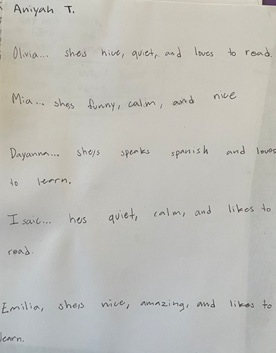 Aniyah T.
Olivia... shes nice, quiet, and loves to read.
Mia... shes funny, calm, and nice
Dayanna... she's speaks spanish and loves
to learn.
Isaic... hes quiet, calm, and likes to
read.
Emilia, shes nice, amazing, and likes to
learn.